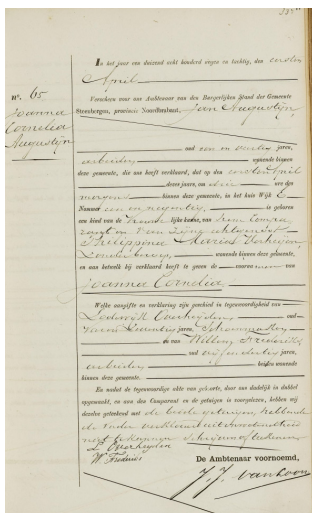 In het jaar een duizend acht honderd vier en tachtig, den eersten
April
n°. 65
Joanna
Cornelia
Augustijn
Verscheen voor ons Ambtenaar van den Burgerlijken Stand der Gemeente
Steenbergen, provincie Noordbrabant, Jan Augustijn
oud een en veertig jaren,
arbeider wonende binnen
deze gemeente, die ons heeft verklaard, dat op den eersten April
dezes jaars, om drie ure des
morgens binnen deze gemeente, in het huis Wijk E
Nummer een en negentig, is geboren
een kind van de vrouwelijke kunne, van hem Compa
rant en van zijne echtgenoot
Philippina Maria Verheijen
zonder beroep, wonende binnen deze gemeente,
en aan hetwelk hij verklaard heeft te geven de voornamen van
Joanna Cornelia
Welke aangifte en verklaring zijn geschied in tegenwoordigheid van
Lodewijk Overheijden oud
jaren, Schoenmaker
en van Willem Frederiks
oud vijf en dertig jaren,
arbeider beiden wonende
binnen deze gemeente.
En nadat de tegenwoordige akte van geboorte, door ons dadelijk in dubbel
opgemaakt, en aan den Comparant en de getuigen is voorgelezen, hebben wij
dezelve geteekend met de beide getuigen, hebbende
de vader verklaard uit onwetendheid
niet te kunnen schrijven of teekenen
L. Overheijden
W Frederiks
De Ambtenaar voornoemd,
J. J. van Loon